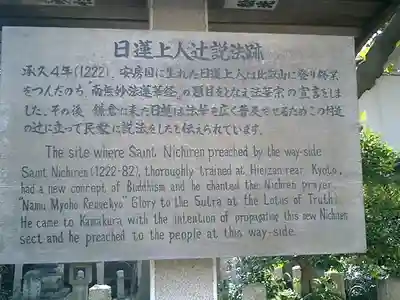 日蓮上人辻説法跡
承久4年(1222)、安房国に生れた日蓮上人は比叡山に登り修業
をつんだのち、"南無妙法蓮華経"の題目をとなえ法華宗の宣言をしま
した、その後 鎌倉に来た日蓮は法華を広く普及させるためこの付近
の辻に立って民衆に説法をしたと伝えられています。
The site where Saint Nichiren preached by the way-side.
Saint Nichiren (1222-82), thoroughly trained at Hieizan near Kyoto,
had a new concept of Buddhism and he chanted the Nichiren prayer
"Namu Myoho Rengekyo" Glory to the Sutra at the Lotus of Truth).
He came to Kamakura with the intention of propagating this new Nichiren
sect and he preached to the people at this way-side.